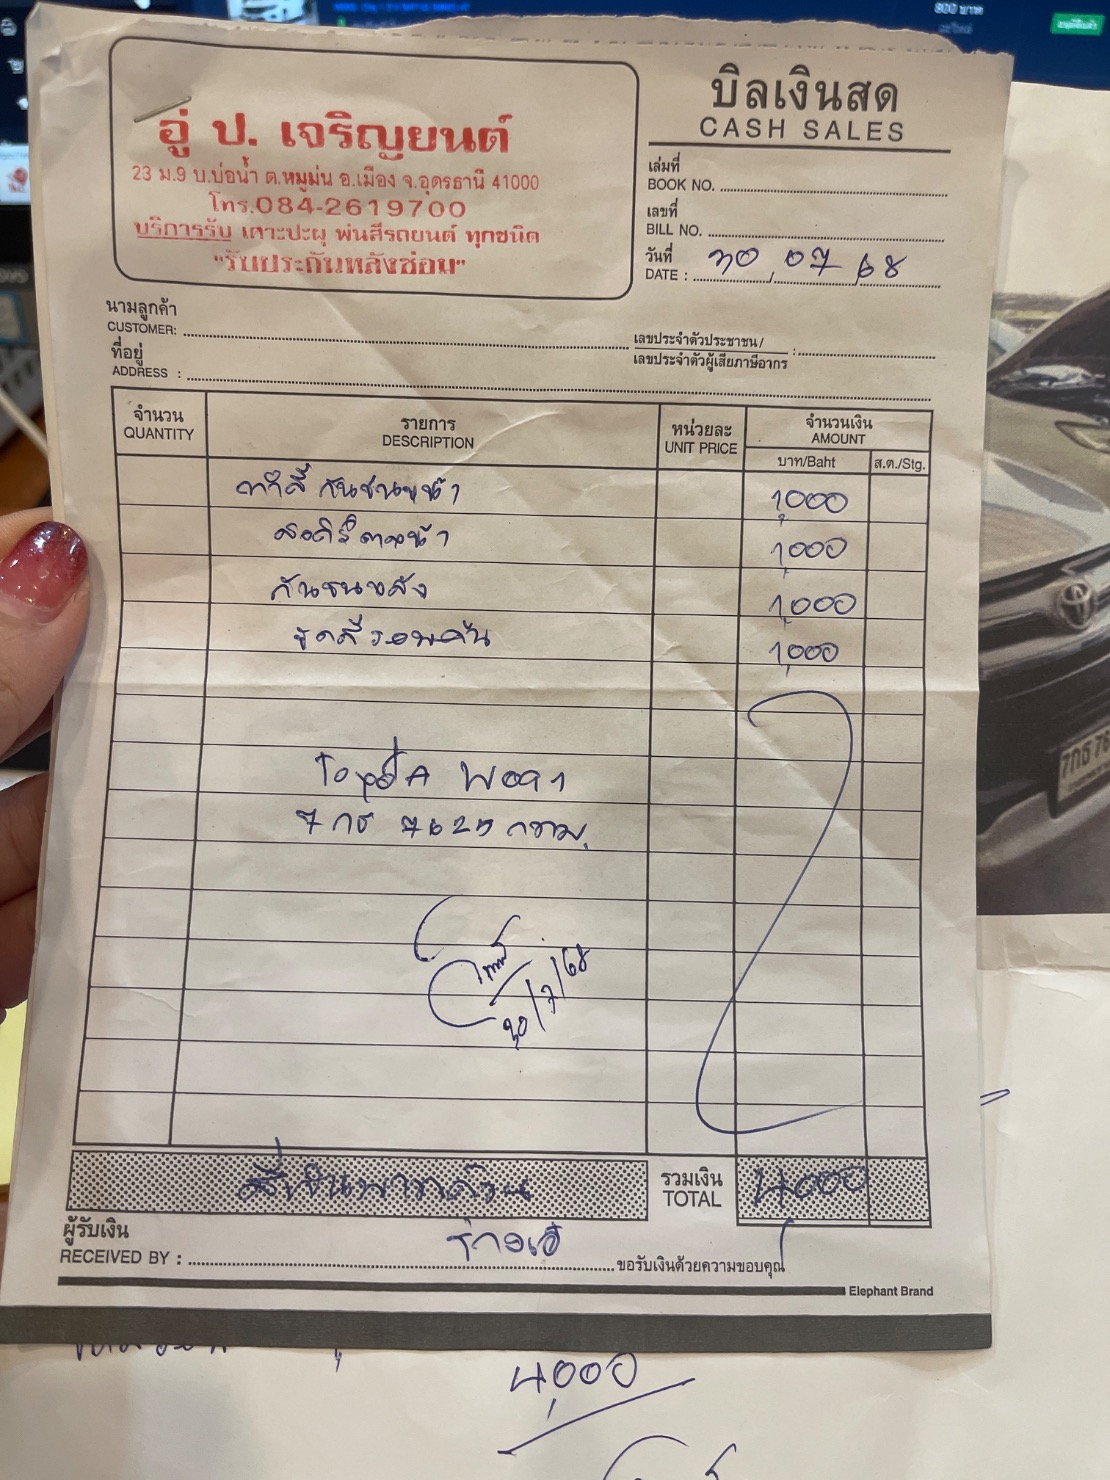 800 บาท
อู่ ป. เจริญยนต์
23 ม.9 บ.บ่อน้ำ ต.หมูม่น อ.เมือง จ.อุดรธานี 41000
โทร.084-2619700
บริการรับ เคาะปะผุ พ่นสีรถยนต์ ทุกชนิด
"รับประกันหลังซ่อม"
บิลเงินสด
CASH SALES
เล่มที่
BOOK NO.
เลขที่
BILL NO.
วันที่
DATE : 30 / 07 / 68
นามลูกค้า
CUSTOMER:
เลขประจำตัวประชาชน/
เลขประจำตัวผู้เสียภาษีอากร :
ที่อยู่
ADDRESS :
จำนวน รายการ หน่วยละ จำนวนเงิน
QUANTITY DESCRIPTION UNIT PRICE AMOUNT
บาท/Baht ส.ต./Stg.
ทำสี กันชนหน้า 1,000
1,000
กันชนหลัง 1,000
ขัดสีรอบคัน 1,000
Toyota
7 กธ 7625 กทม.
30/7/68
สี่พันบาทถ้วน
รวมเงิน
TOTAL 4,000
ผู้รับเงิน
RECEIVED BY :
ขอรับเงินด้วยความขอบคุณ
Elephant Brand
4,000
7กธ 76